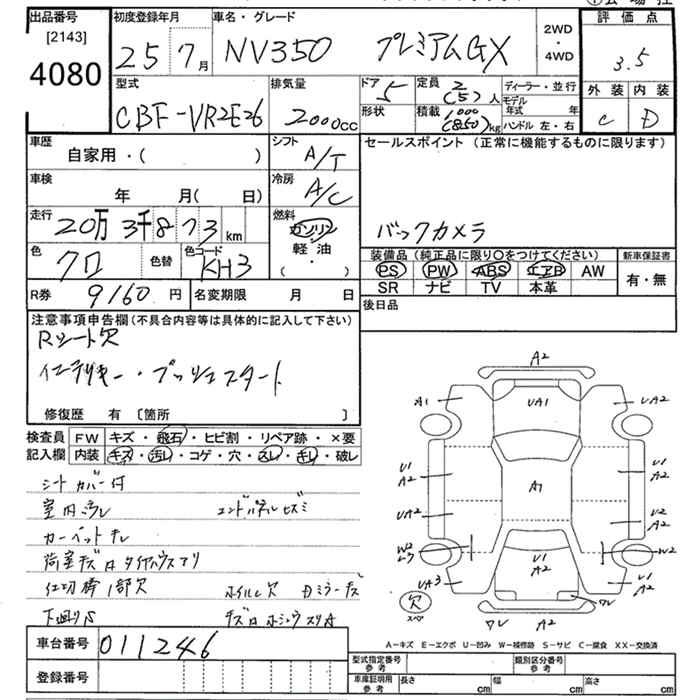 出品番号
[2143]
4080
初度登録年月
25 7月
車名・グレード
NV350 プレミアムGX
2WD
・
4WD
評価点
3.5
外装 内装
C D
型式
CBF-VR2E26
排気量
2000cc
ドア
5
形状
定員 2(5)人
積載 1000(850)kg
ディーラー・並行
モデル年式 年
ハンドル 左・右
車歴
自家用・( )
シフト
A/T
セールスポイント(正常に機能するものに限ります)
バックカメラ
車検
年 月( 日)
冷房
A/C
走行
20万3千873km
燃料
ガソリン
軽・油
・( )
色
クロ
色替
色コード
KH3
装備品(純正品に限り〇をつけてください)
PS PW ABS エアB AW
SR ナビ TV 本革
新車保証書
有・無
R券 9160円
名変期限 月 日
後日品
注意事項申告欄(不具合内容等は具体的に記入して下さい)
Rシート欠
インテリキー・プッシュスタート
修復歴 有 〔箇所 〕
検査員記入欄
FW キズ・飛石・ヒビ割・リペア跡・×要
内装 キズ・汚レ・コゲ・穴・スレ・キレ・破レ
シートカバー付
室内ヨゴレ エンドパネルヒズミ
カーペットキレ
荷室キズ タイヤハウスサリ
仕切棒1部欠 ホイルC欠 Dミラーキズ
下廻りS
車台番号 011246
登録番号
A2
A1
UA1
UA2
U1
A2
A1
U1
A2
UA2
U2
A2
W2
W2
U1
A2
UA3
U1
A2
欠
スペア
ワレ
ワレ
A2
A-キズ E-エクボ U-凹み W-補修跡 S-サビ C-腐食 XX-交換済
型式指定番号
参考
類別区分番号
参考
車庫証明用
参考
長さ cm
幅 cm
高さ cm